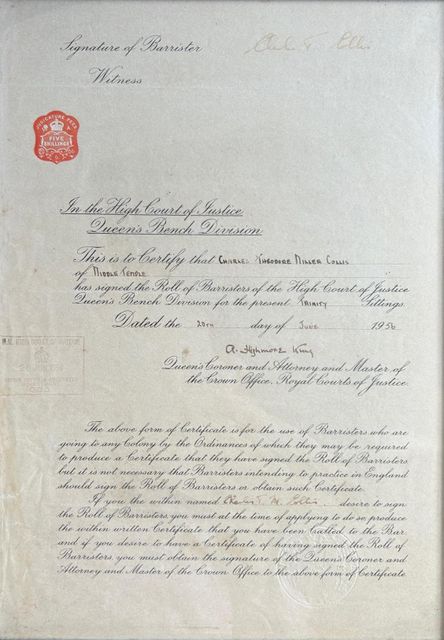 Signature of Barrister
Witness
JUDICATURE FEES
FIVE
SHILLINGS
In the High Court of Justice
Queen's Bench Division
This is to Certify that CHARLES THEODORE MILLER COLLIS
of MIDDLE TEMPLE
has signed the Roll of Barristers of the High Court of Justice
Queen's Bench Division for the present TRINITY Sittings.
Dated the 20TH day of JUNE 1956
A. Highmore King
Queen's Coroner and Attorney and Master of
the Crown Office, Royal Courts of Justice.
The above form of Certificate is for the use of Barristers who are
going to any Colony by the Ordinances of which they may be required
to produce a Certificate that they have signed the Roll of Barristers
but it is not necessary that Barristers intending to practice in England
should sign the Roll of Barristers or obtain such Certificate.
If you the within named desire to sign
the Roll of Barristers you must at the time of applying to do so produce
the within written Certificate that you have been Called to the Bar
and if you desire to have a Certificate of having signed the Roll of
Barristers, you must obtain the signature of the Queen's Coroner and
Attorney and Master of the Crown Office to the above form of Certificate